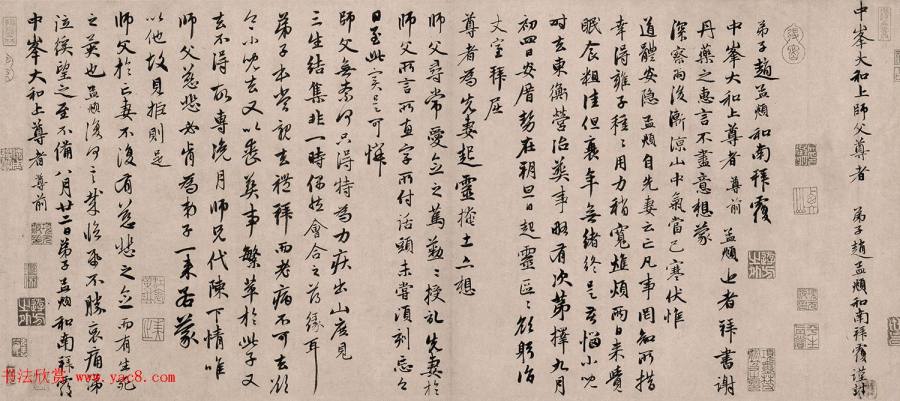 中峯大和上師父尊者 弟子趙孟頫和南拜覆 謹封
弟子趙孟頫和南拜覆
中峯大和上尊者 尊前 孟頫 者拜書謝
丹藥之惠言不盡意想蒙
深察雨後漸涼山中氣當已寒伏惟
道體安隱孟頫自先妻云亡凡事罔知所措
幸得雍子種種用力稍寬 煩兩日來
眠食粗佳但衰年無緒終是苦惱小兒
時去東衡營治葬事略有次第擇九月
初四日安厝勢在朔旦日起靈區區欲躬詣
丈室拜屈
尊者為先妻起靈掩土亡想
師父尋常愛念之篤勤勤授記先妻於
師父所言所直字所付話頭未嘗須刻忘之
日至此實是可憐
師父無奈何只得特為力疾出山度見
三生結集非一時偶然會合之薄緣耳
弟子本當親去禮拜而老病不可去欲
令小兒去又以喪葬事繁萃於此子又
去不得所專浼月師兄代陳下情唯
師父慈悲必肯為弟子一來若蒙
以他故見拒則是
師父於亡妻不復有慈悲之念而有生死
之異也孟頫復何言哉臨紙不勝哀痛涕
泣徯望之至不備八月廿二日弟子孟頫和南拜覆
中峯大和上尊者 尊前
书法欣赏 www.yac8.com